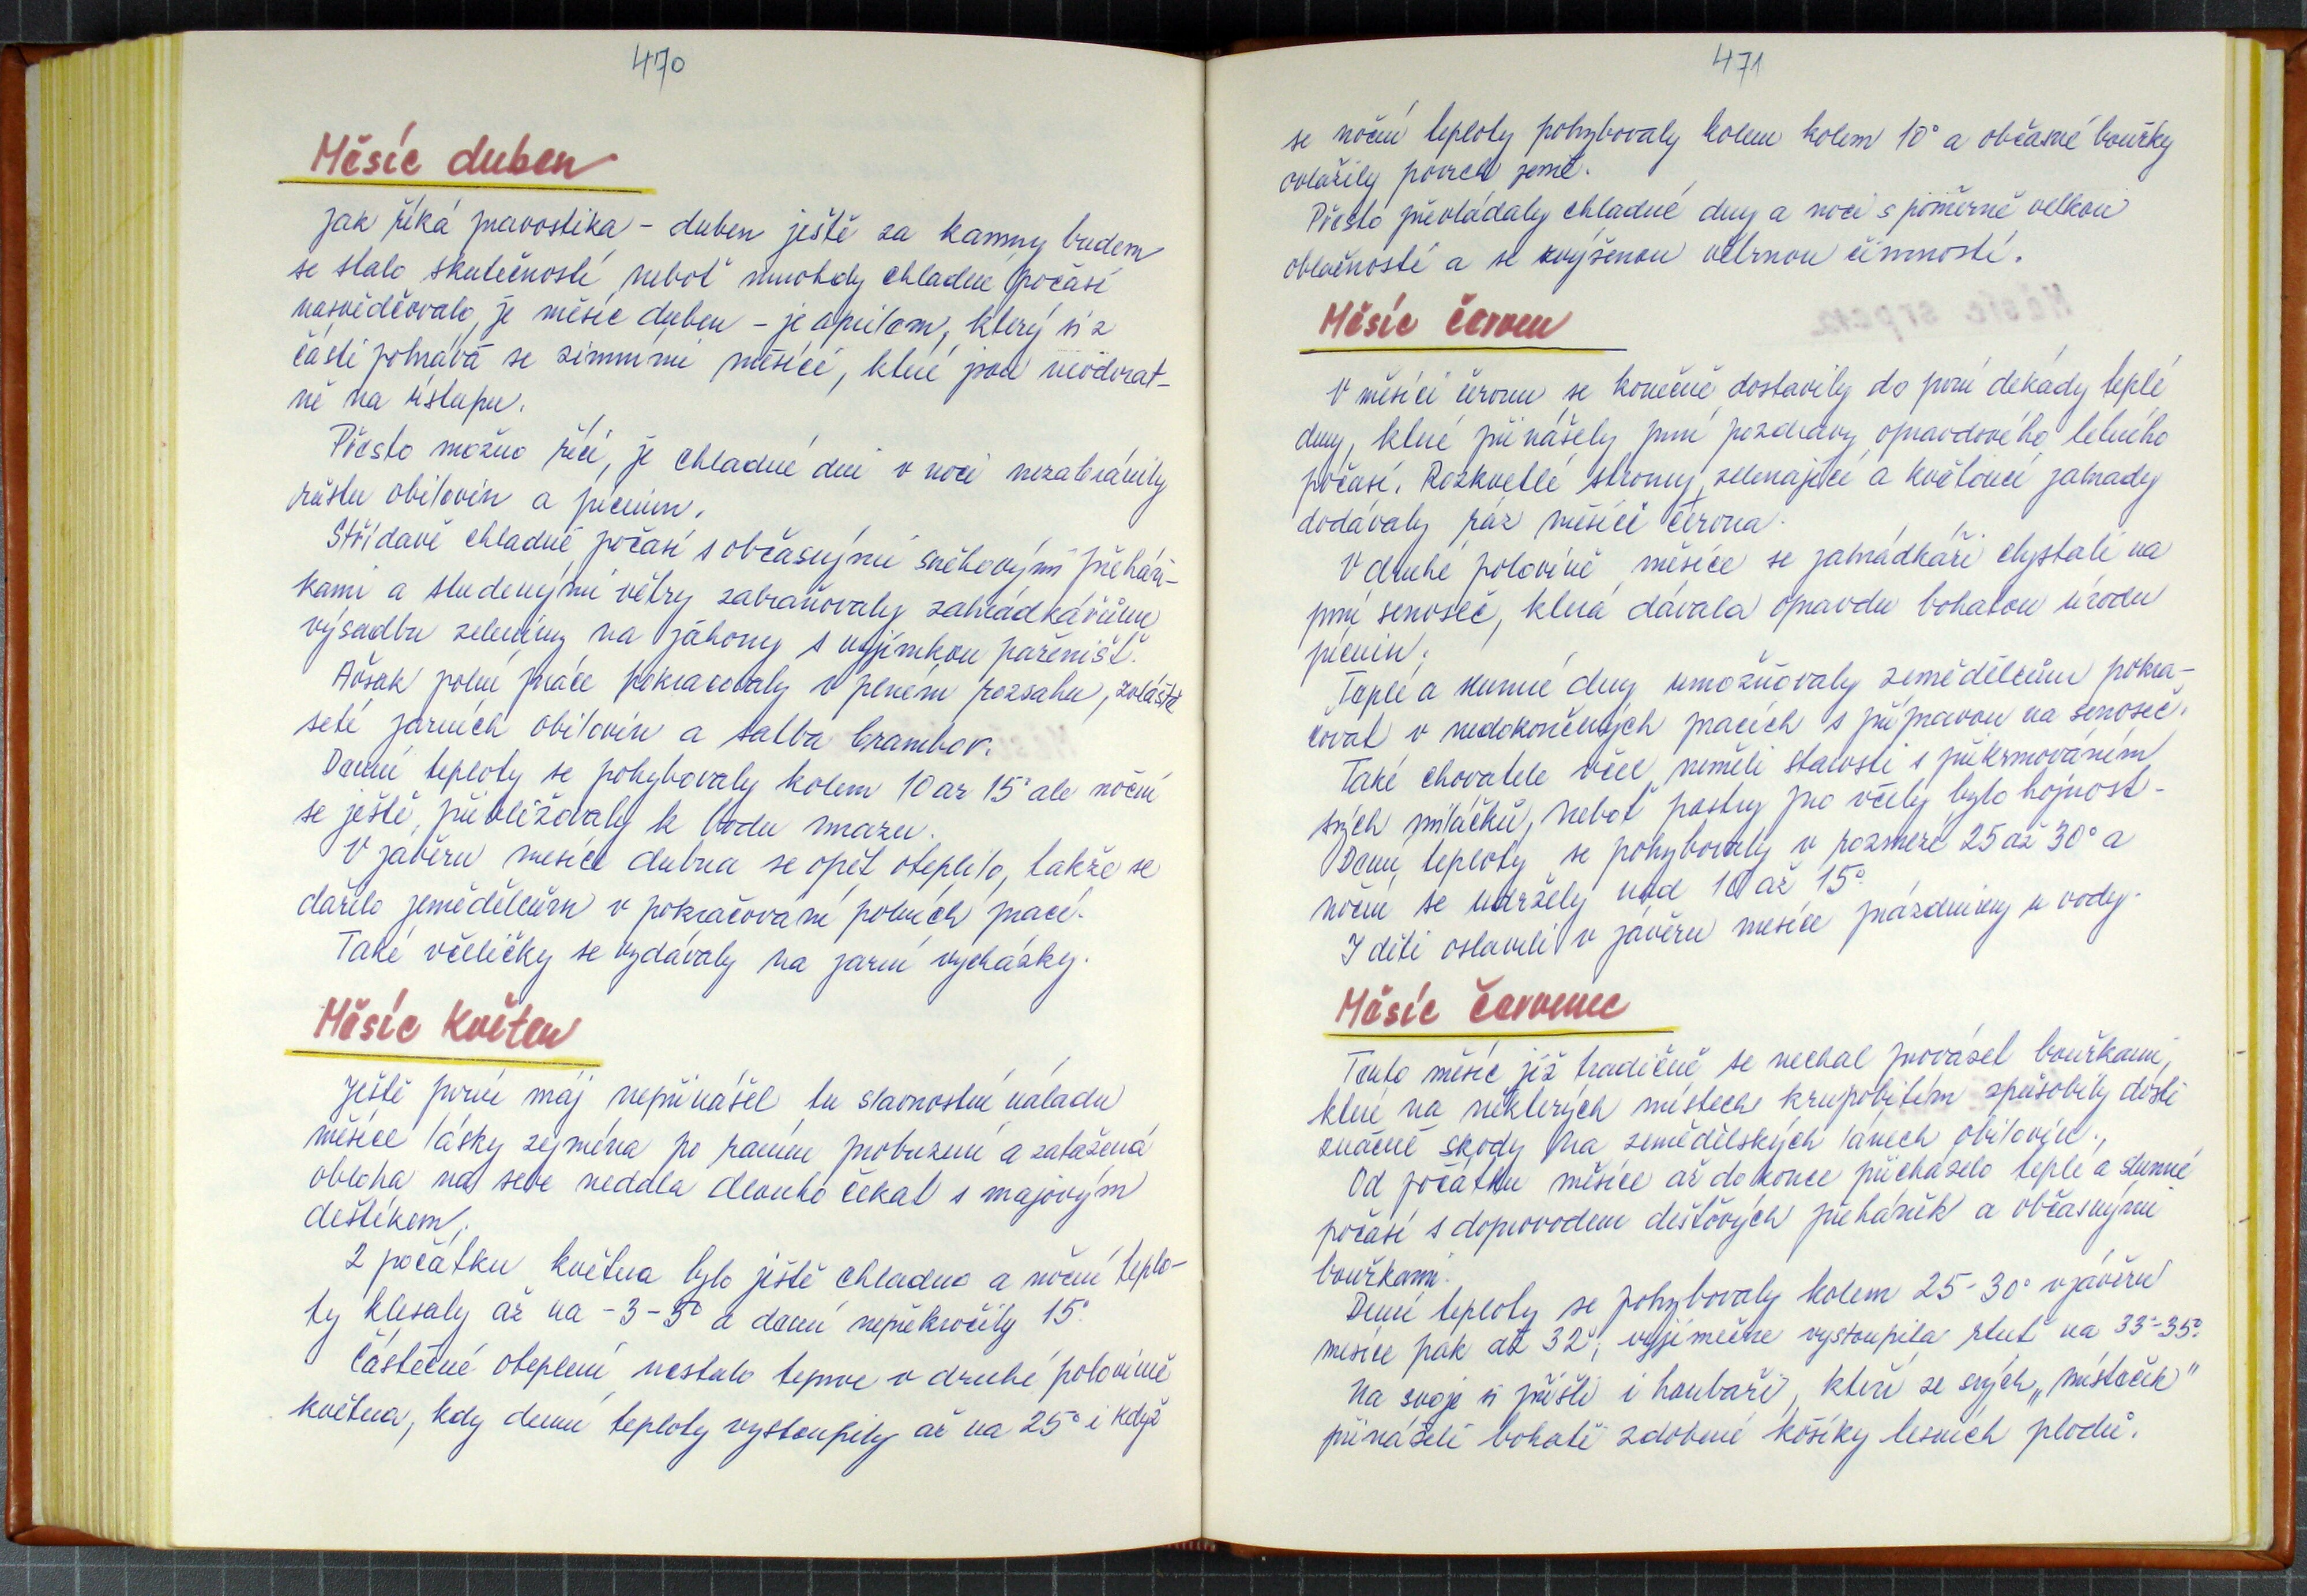 470
Měsíc duben
Jak říká pranostika - duben ještě za kamny budem
se stalo skutečností neboť mnohdy chladné počasí
nasvědčovalo, že měsíc duben - je aprílem, který si z
části pohrává se zimními měsíci, které jsou neodvrat-
ně na ústupu.
Přesto možno říci, že chladné dni v noci nezabránily
růstu obilovin a pícnin.
Střídavě chladné počasí s občasnými sněhovými přehán-
kami a studenými větry zabraňovaly zahrádkářům
výsadbu zeleniny na záhony s vyjímkou pařenišť.
Avšak polní práce pokracovaly v plném rozsahu, zvláště
setí jarních obilovin a satba brambor.
Denní teploty se pohybovaly kolem 10 az 15° ale noční
se ještě přibližovaly k bodu mrazu.
V závěru mesíce dubna se opět oteplilo, takže se
dařilo zemědělcům v pokračování polních prací.
Také včeličky se vydávaly na jarní vycházky.
Měsíc květen
Ještě první máj nepřinášel tu slavnostní náladu
měsíce lásky zejména po raním probuzení a zatažená
obloha na sebe nedala dlouho čekat s majovým
deštíkem.
Z počátku května bylo ještě chladno a noční teplo-
ty klesaly až na -3-5° a denní nepřekročily 15°.
Částečné oteplení nastalo teprve v druhé polovině
května, kdy denní teploty vystoupily až na 25° i když
471
se noční teploty pohybovaly kolem kolem 10° a občasné bouřky
ovlažily povrch země.
Přesto převládaly chladné dny a noci s poměrně velkou
oblačností a se zvýšenou větrnou činností.
Měsíc červen
V měsíci červnu se konečně dostavily do první dekády teplé
dny, které přinášely první pozdravy opravdového letního
počasí. Rozkvetlé stromy, zelenající a květoucí zahrady
dodávaly ráz měsíci června.
V druhé polovině měsíce se zahrádkáři chystali na
první senoseč, která dávala opravdu bohatou úrodu
pícnin.
Teplé a slunné dny umožňovaly zemědělcům pokra-
covat v nedokončených pracích s přípravou na senoseč.
Také chovatele včel neměli starosti s přikrmováním
svých miláčků, neboť pastvy pro včely bylo hojnost.
Denní teploty se pohybovaly v rozmezí 25 až 30° a
noční se udržely nad 10 až 15°.
I děti oslavili v závěru mesíce prázdniny u vody.
Měsíc červenec
Tento měsíc již tradičně se nechal provázet bouřkami,
které na některých místech krupobitím způsobily dosti
značné škody na zemědělských lánech obilovin.
Od počátku měsíce až do konce přicházelo teplé a slunné
počasí s doprovodem dešťových přeháněk a občasnými
bouřkami.
Denní teploty se pohybovaly kolem 25-30° v závěru
mesíce pak až 32°, vyjímečne vystoupila rtuť na 33°-35°.
Na svoje si přišli i houbaři, kteří ze svých „místeček"
přinášeli bohatě zdobené košíky lesních plodů.